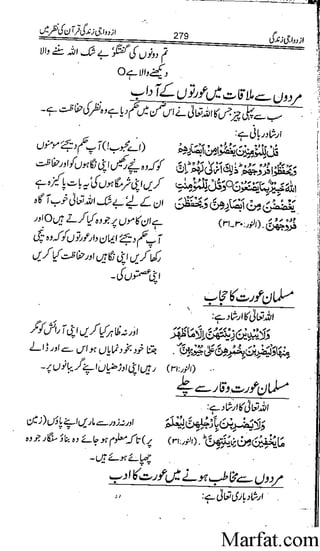 ازدواجی زندگی 279 ازدواجی زندگی قرآن کی نظر میں
تم دونوں کی گفتگو بے شک اللہ سننے والا
دیکھنے والا ہے O
مردوں سے ملاقات میں عورتوں کے آداب
سب سے پہلی چیز جس کا اللہ تعالیٰ نے اس ضمن میں حکم دیا ہے وہ نظر کی حفاظت ہے۔
ارشاد ربانی ہے:
قُلْ لِلْمُؤْمِنِيْنَ يَغُضُّوْا مِنْ اَبْصَارِهِمْ
وَيَحْفَظُوْا فُرُوْجَهُمْ ذٰلِكَ اَزْكٰى لَهُمْ اِنَّ
اللهَ خَبِيْرٌۢ بِمَا يَصْنَعُوْنَ O وَقُلْ لِّلْمُؤْمِنٰتِ
يَغْضُضْنَ مِنْ اَبْصَارِهِنَّ وَيَحْفَظْنَ
فُرُوْجَهُنَّ. (النور:۳۰۔۳۱)
(اے محبوب!) آپ حکم دیجئے مومنوں
کو کہ وہ نیچے رکھیں اپنی نگاہوں کو اور حفاظت
کریں اپنی شرمگاہوں کی یہ بات پاکیزہ ہے
ان کے لئے بے شک اللہ تعالیٰ خوب آگاہ
ہے ان کاموں پر جو وہ کیا کرتے ہیں O اور
آپ حکم دیجئے ایمان دار عورتوں کو کہ وہ نیچی
رکھا کریں اپنی نگاہیں اور حفاظت کیا کریں
اپنی عصمتوں کی۔
مسلمان عورت کا حجاب
اللہ تعالیٰ کا ارشاد ہے:
وَلَا يُبْدِيْنَ زِيْنَتَهُنَّ اِلَّا مَا ظَهَرَ
مِنْهَا وَلْيَضْرِبْنَ بِخُمُرِهِنَّ عَلٰى جُيُوْبِهِنَّ
(النور:۳۱)
اور نہ ظاہر کیا کریں اپنی آرائش کو مگر
جتنا خود بخود نمایاں ہو اس سے اور ڈالے
رہیں اپنی اوڑھنیاں اپنے گریبانوں پر۔
مسلمان عورت وقار سے چلے
اللہ تعالیٰ کا ارشاد ہے:
وَلَا يَضْرِبْنَ بِاَرْجُلِهِنَّ لِيُعْلَمَ
مَا يُخْفِيْنَ مِنْ زِيْنَتِهِنَّ. (النور:۳۱)
اور نہ زور سے ماریں اپنے پاؤں (زمین
پر) تاکہ معلوم ہو جائے وہ بناؤ سنگار جو وہ
چھپائے ہوئے ہیں۔
مردوں سے مخاطب ہونے میں عورت کا ادب
ارشاد باری تعالیٰ ہے:
Marfat.com